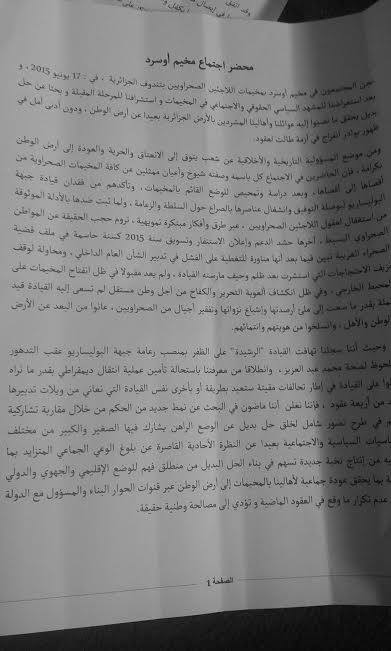 وقد اتفق
محضر إجتماع مخيم أوسرد
نحن المجتمعون في مخيم أوسرد بمخيمات اللاجئين الصحراويين بتندوف الجزائرية ، في : 17 يونيو 2015 ، و
بعد استعراضنا للمشهد السياسي الحقوقي والاجتماعي في المخيمات و استشرافنا للمرحلة المقبلة و بحثا عن حل
بديل يحقق ما تصبوا إليه عوائلنا وأهالينا المشردين بالأرض الجزائرية بعيدا عن أرض الوطن ، ودون أدنى أمل في
ظهور بوادر انفراج في أزمة طالت لعقود.
ومن موضع المسؤولية التاريخية والأخلاقية عن شعب يتوق إلى الانعتاق والحرية والعودة إلى أرض الوطن
بكرامة ، فإن الحاضرين في الاجتماع كل باسمه وصفته شيوخ وأعيان ممثلين عن كافة المخيمات الصحراوية من
أقصاها إلى أقصاها ، وبعد دراسة وتمحيص للوضع القائم بالمخيمات ، وتأكدهم من فقدان قيادة جبهة
البوليساريو لبوصلة التوفيق وانشغال عناصرها بالصراع حول السلطة والزعامة ، ولما ثبت ضدها بالأدلة الموثوقة
من استغفال لعقول اللاجئين الصحراويين ، عبر طرق وأفكار مبتكرة تمويهية ، تروم حجب الحقيقة عن المواطن
الصحراوي البسيط ، آخرها حشد الدعم وإعلان الاستنفار وتسويق سنة 2015 كسنة حاسمة في ملف قضية
الصحراء الغربية تبين فيما بعد أنها مناورة للتغطية على الفشل في تدبير الشأن العام الداخلي ، ومحاولة لوقف
نزيف الاحتجاجات التي استشرت بعد ظلم وحيف مارسته القيادة ، ولم يعد مقبولا في ظل انفتاح المخيمات على
المحيط الخارجي ، وفي ظل انكشاف ألعوبة التحرير والكفاح من أجل وطن مستقل لم تسعى إليه القيادة قيد
بقدر ما سعت إلى ملئ أرصدتها وإشباع نزواتها وتفقير أجيال من الصحراويين ، عانوا من البعد عن الأرض
والوطن والأهل ، وانسلخوا من هويتهم وانتمائهم.
وحيث أننا سجلنا تهافت القيادة "الرشيدة" على الظفر بمنصب زعامة جبهة البوليساريو عقب التدهور
لصحة محمد عبد العزيز ، وانطلاقا من معرفتنا باستحالة تأمين عملية انتقال ديمقراطي بقدر ما نراه
على القيادة في إطار تحالفات مقيتة ستعيد بطريقة أو بأخرى نفس القيادة التي نعاني من ويلات تدبيرها
من أربعة عقود ، فإننا نعلن أننا ماضون في البحث عن نمط جديد من الحكم من خلال مقاربة تشاركية
في طرح تصور شامل لخلق حل بديل عن الوضع الراهن يشارك فيها الصغير والكبير من مختلف
السياسية والاجتماعية بعيدا عن النظرة الأحادية القاصرة عن بلوغ الوعي الجماعي المتزايد بما
من إنتاج نخبة جديدة تسهم في بناء الحل البديل من منطلق فهم للوضع الإقليمي والجهوي والدولي
بما يحقق عودة جماعية لأهالينا بالمخيمات إلى أرض الوطن عبر قنوات الحوار البناء والمسؤول مع الدولة
عدم تكرار ما وقع في العقود الماضية و تؤدي إلى مصالحة وطنية حقيقة.
الصفحة 1